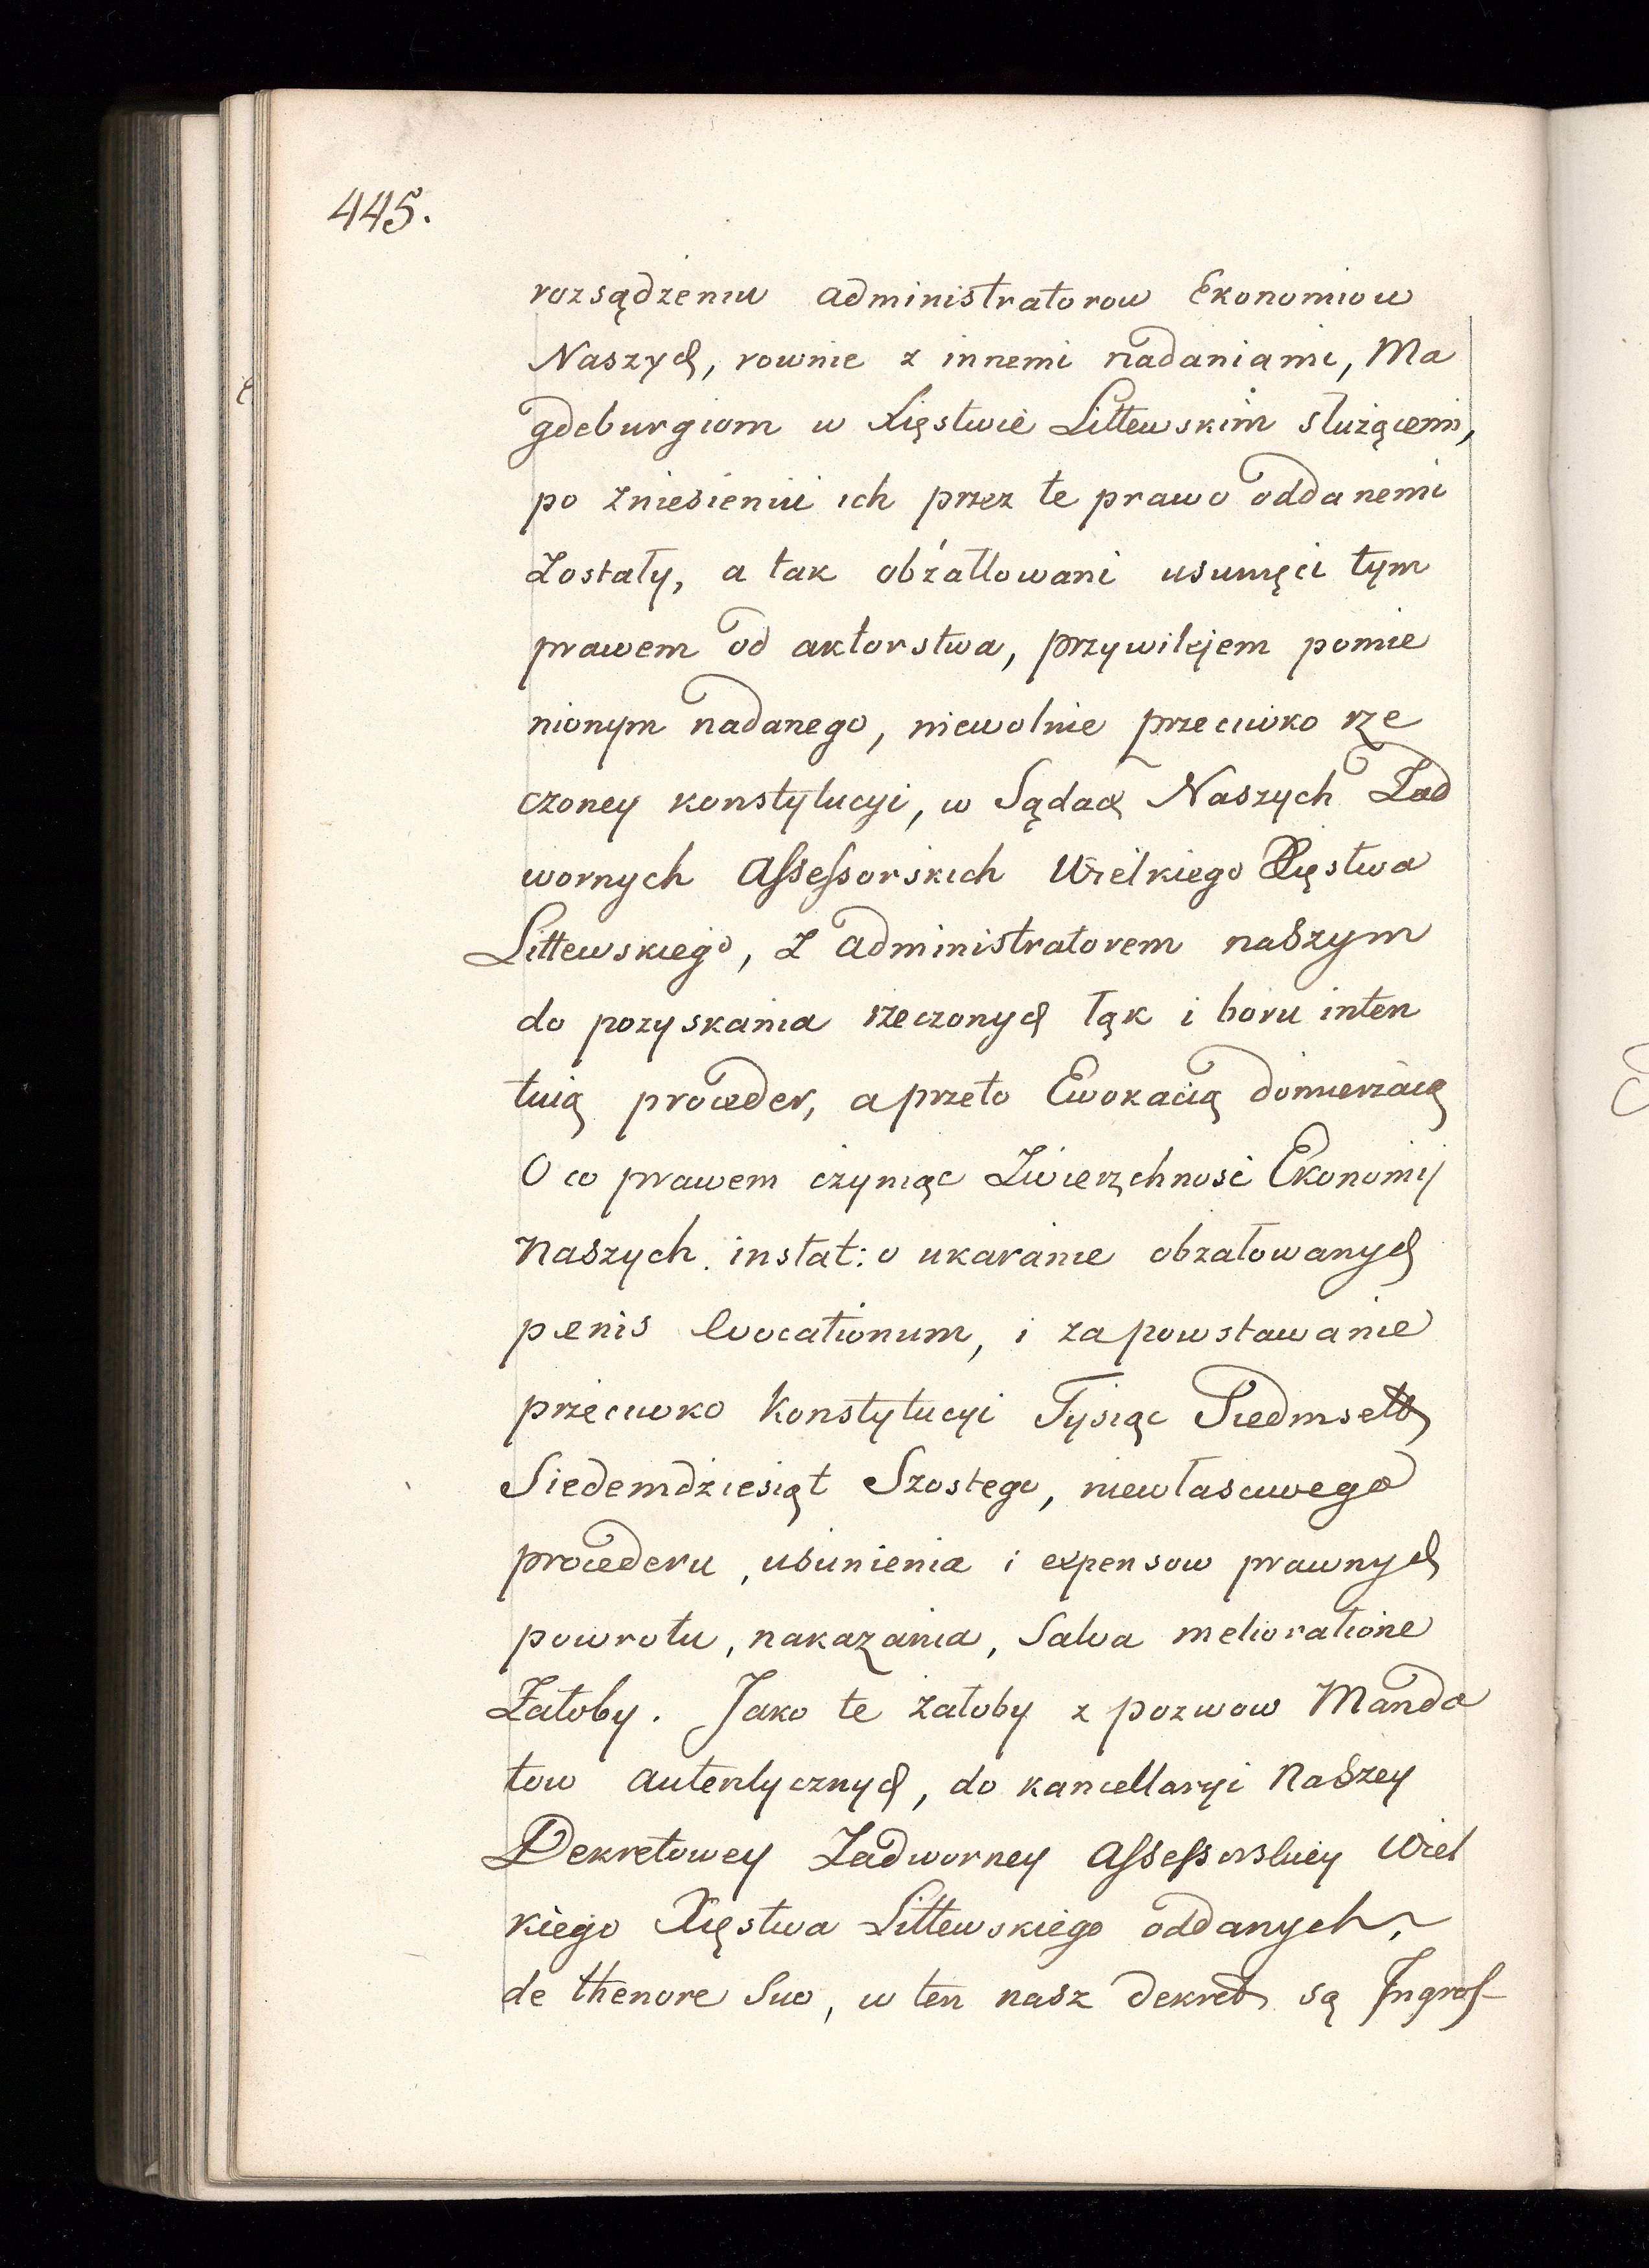 445.
rozsądzeniu administratorow Ekonomiow
Naszych, rownie z innemi nadaniami, Ma
gdeburgiom w Xięstwie Littewskim słuzącemi,
po zniesieniu ich przez te prawo oddanemi
zostały, a tak obżałłowani usunięci tym
prawem od aktorstwa, przywilejem pomie
nionym nadanego, niewolnie przeciwko rze
czoney konstytucyi, w Sądach Naszych Zad
wornych Assessorskich Wielkiego Xięstwa
Littewskiego, z administratorem naszym
do pozyskania rzeczonych łąk i boru inten
tuią proceder, a przeto Ewokacią domierzaią
O co prawem czyniąc Zwierzchność Ekonomij
Naszych instat: o ukaranie obzałowanych
penis Evocationum, i za powstawanie
przeciwko Konstytucyi Tysiąc Siedmset
Siedemdziesiąt Szostego, niewłasciwego
procederu, usunienia i expensow prawnych
powrotu, nakazania, Salva melioratione
Załoby. Jako te załoby z pozwow Manda
tow autentycznych, do kancellaryi Naszey
Dekretowey Zadworney Assessorskiey Wiel
kiego Xięstwa Littewskiego oddanych,
de thenore Suo, w ten nasz dekret są Ingros-